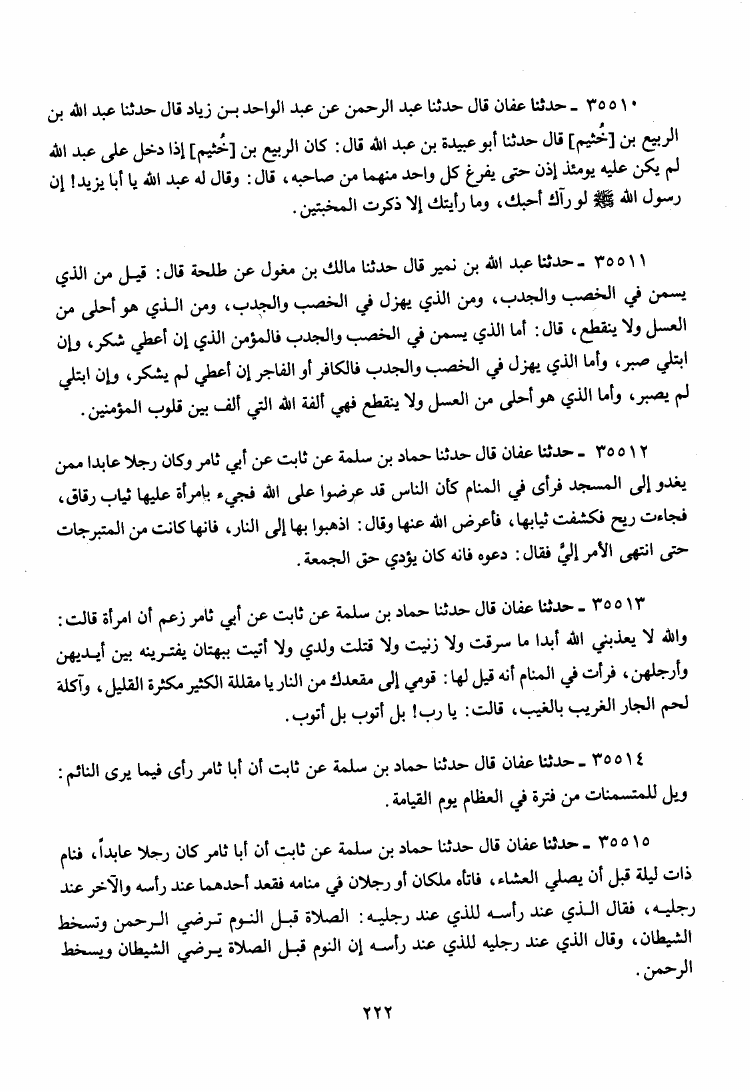 ٣٥٥١٠ ـ حدثنا عفان قال حدثنا عبد الرحمن عن عبد الواحد بـن زياد قال حدثنا عبد الله بن
الربيع بن [خُثيم] قال حدثنا أبو عبيدة بن عبد الله قال: كان الربيع بن [خُثيم] إذا دخل على عبد الله
لم يكن عليه يومئذ إذن حتى يفرغ كل واحد منهما من صاحبه، قال: وقال له عبد الله يا أبا يزيد! إن
رسول الله ﷺ لو رآك أحبك، وما رأيتك إلا ذكرت المخبتين.
٣٥٥١١ ـ حدثنا عبد الله بن نمير قال حدثنا مالك بن مغول عن طلحة قال: قيـل من الذي
يسمن في الخصب والجدب، ومن الذي يهزل في الخصب والجدب، ومن الـذي هو أحلى من
العسل ولا ينقطع، قال: أما الذي يسمن في الخصب والجدب فالمؤمن الذي إن أعطي شكر، وإن
ابتلي صبر، وأما الذي يهزل في الخصب والجدب فالكافر أو الفاجر إن أعطي لم يشكر، وإن ابتلي
لم يصبر، وأما الذي هو أحلى من العسل ولا ينقطع فهي ألفة الله التي ألف بين قلوب المؤمنين.
٣٥٥١٢ ـ حدثنا عفان قال حدثنا حماد بن سلمة عن ثابت عن أبي ثامر وكان رجلا عابدا ممن
يغدو إلى المسجد فرأى في المنام كأن الناس قد عرضوا على الله فجيء بامرأة عليها ثياب رقاق،
فجاءت ريح فكشفت ثيابها، فأعرض الله عنها وقال: اذهبوا بها إلى النار، فانها كانت من المتبرجات
حتى انتهى الأمر إليَّ فقال: دعوه فانه كان يؤدي حق الجمعة.
٣٥٥١٣ ـ حدثنا عفان قال حدثنا حماد بن سلمة عن ثابت عن أبي ثامر زعم أن امرأة قالت:
والله لا يعذبني الله أبدا ما سرقت ولا زنيت ولا قتلت ولدي ولا أتيت ببهتان يفتـرينه بين أيـديهن
وأرجلهن، فرأت في المنام أنه قيل لها: قومي إلى مقعدك من النار يا مقللة الكثير مكثرة القليل، وآكلة
لحم الجار الغريب بالغيب، قالت: يا رب! بل أتوب بل أتوب.
٣٥٥١٤ ـ حدثنا عفان قال حدثنا حماد بن سلمة عن ثابت أن أبا ثامر رأى فيما يرى النائم:
ويل للمتسمنات من فترة في العظام يوم القيامة.
٣٥٥١٥ ـ حدثنا عفان قال حدثنا حماد بن سلمة عن ثابت أن أبا ثامر كان رجلا عابداً، فنام
ذات ليلة قبل أن يصلي العشاء، فاتأه ملكان أو رجلان في منامه فقعد أحدهما عند رأسه والآخر عند
رجليـه، فقال الـذي عند رأسـه للذي عند رجليـه: الصلاة قبـل النـوم تـرضي الـرحمن وتسخط
الشيطان، وقال الذي عند رجليه للذي عند رأسـه إن النوم قبـل الصلاة يـرضي الشيطان ويسخط
الرحمن.
٢٢٢